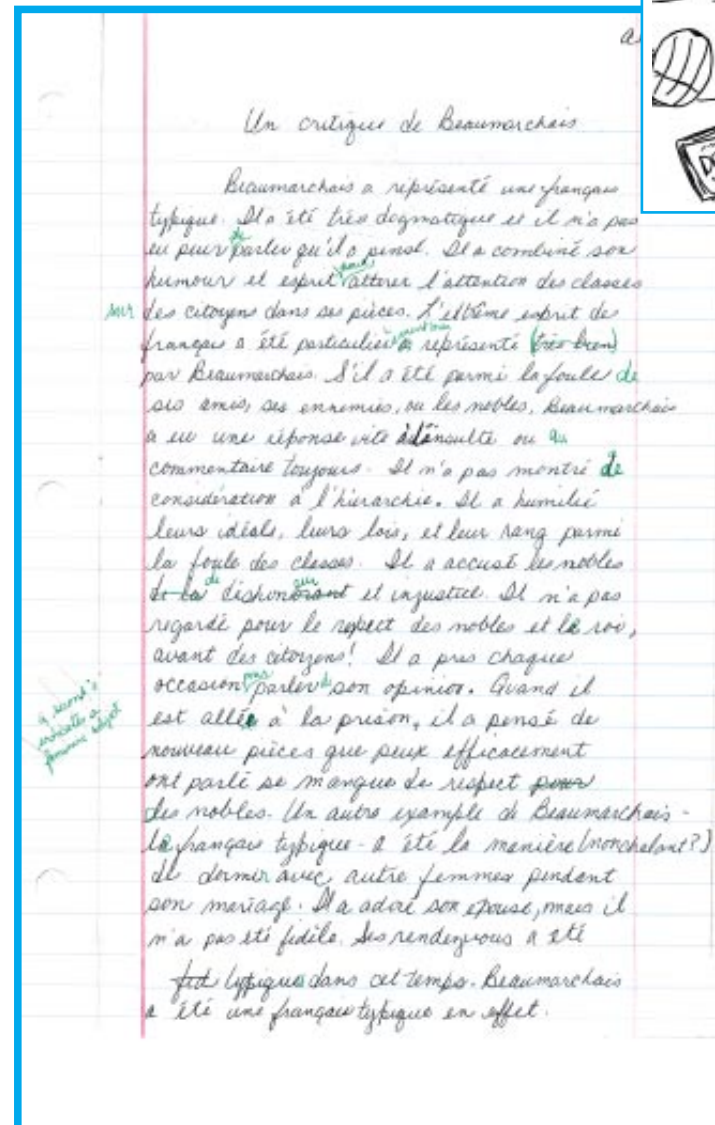 a
Un critique de Beaumarchais
Beaumarchais a représenté une français
typique. Il a été très dogmatique et il n'a pas
de
eu peur parler qu'il a pensé. Il a combiné son
pour
humour et esprit attirer l'attention des classes
sur des citoyens dans ses pièces. L'extrême esprit de
français a été particulier représenté (très bien)
par Beaumarchais. S'il a été parmi la foule de
ses amis, ses ennemies, ou les nobles, Beaumarchais
a eu une réponse vite à l'insulte ou au
commentaire toujours. Il n'a pas montré de
considération à l'hierarchie. Il a humilié
leurs idéals, leurs lois, et leur rang parmi
la foule des classes. Il a accusé les nobles
de
de la et injustice. Il n'a pas
regardé pour le respect des nobles et le roi,
avant des citoyens! Il a pris chaque
pour de
occasion parler son opinion. Quand il
est allé à la prison, il a pensé de
a second e
indicates a
feminine subject
nouveau pièces que peux efficacement
ont parlé se manque de respect pour
des nobles. Un autre example de Beaumarchais -
le français typique - a été la manière (nonchalant?)
de dormir avec autre femmes pendant
son mariage. Il a adoré son épouse, mais il
n'a pas été fidèle. Ses rendezvous a été
typiques dans cet temps. Beaumarchais
a été une français typique en effet.